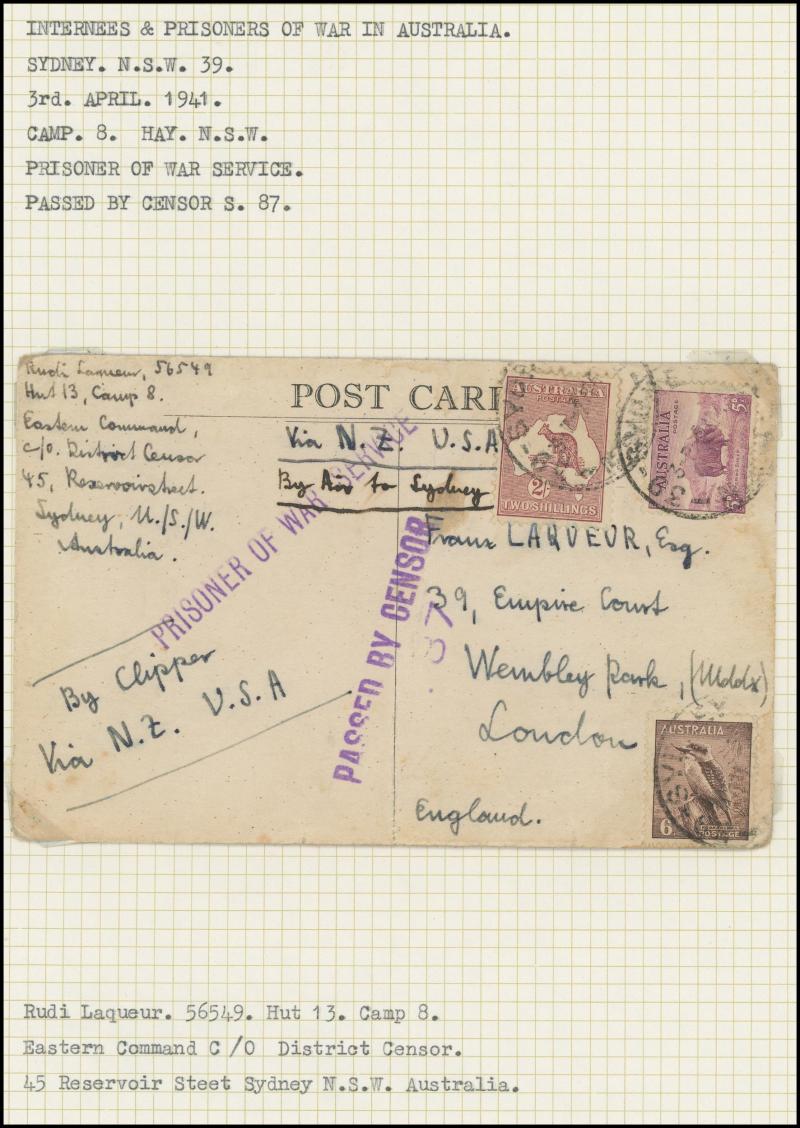 INTERNEES & PRISONERS OF WAR IN AUSTRALIA.
SYDNEY. N.S.W. 39.
3rd. APRIL. 1941.
CAMP. 8. HAY. N.S.W.
PRISONER OF WAR SERVICE.
PASSED BY CENSOR S. 87.
Rudi Laqueur, 56549
Hut 13, Camp 8.
Eastern Command,
c/o. District Censor
45, Reservoirstreet.
Sydney, N./S./W.
Australia.
POST CARD
Via N.Z. U.S.A
By Air to Sydney
AUSTRALIA
POSTAGE
2/-
TWO SHILLINGS
AUSTRALIA
POSTAGE
5D
PRISONER OF WAR SERVICE
PASSED BY CENSOR
87
By Clipper
Via N.Z. U.S.A
Franz LAQUEUR, Esq.
39, Empire Court
Wembley Park, (Mddx)
London
England.
AUSTRALIA
6D
KOOKABURRA
POSTAGE
Rudi Laqueur. 56549. Hut 13. Camp 8.
Eastern Command C/O District Censor.
45 Reservoir Steet Sydney N.S.W. Australia.